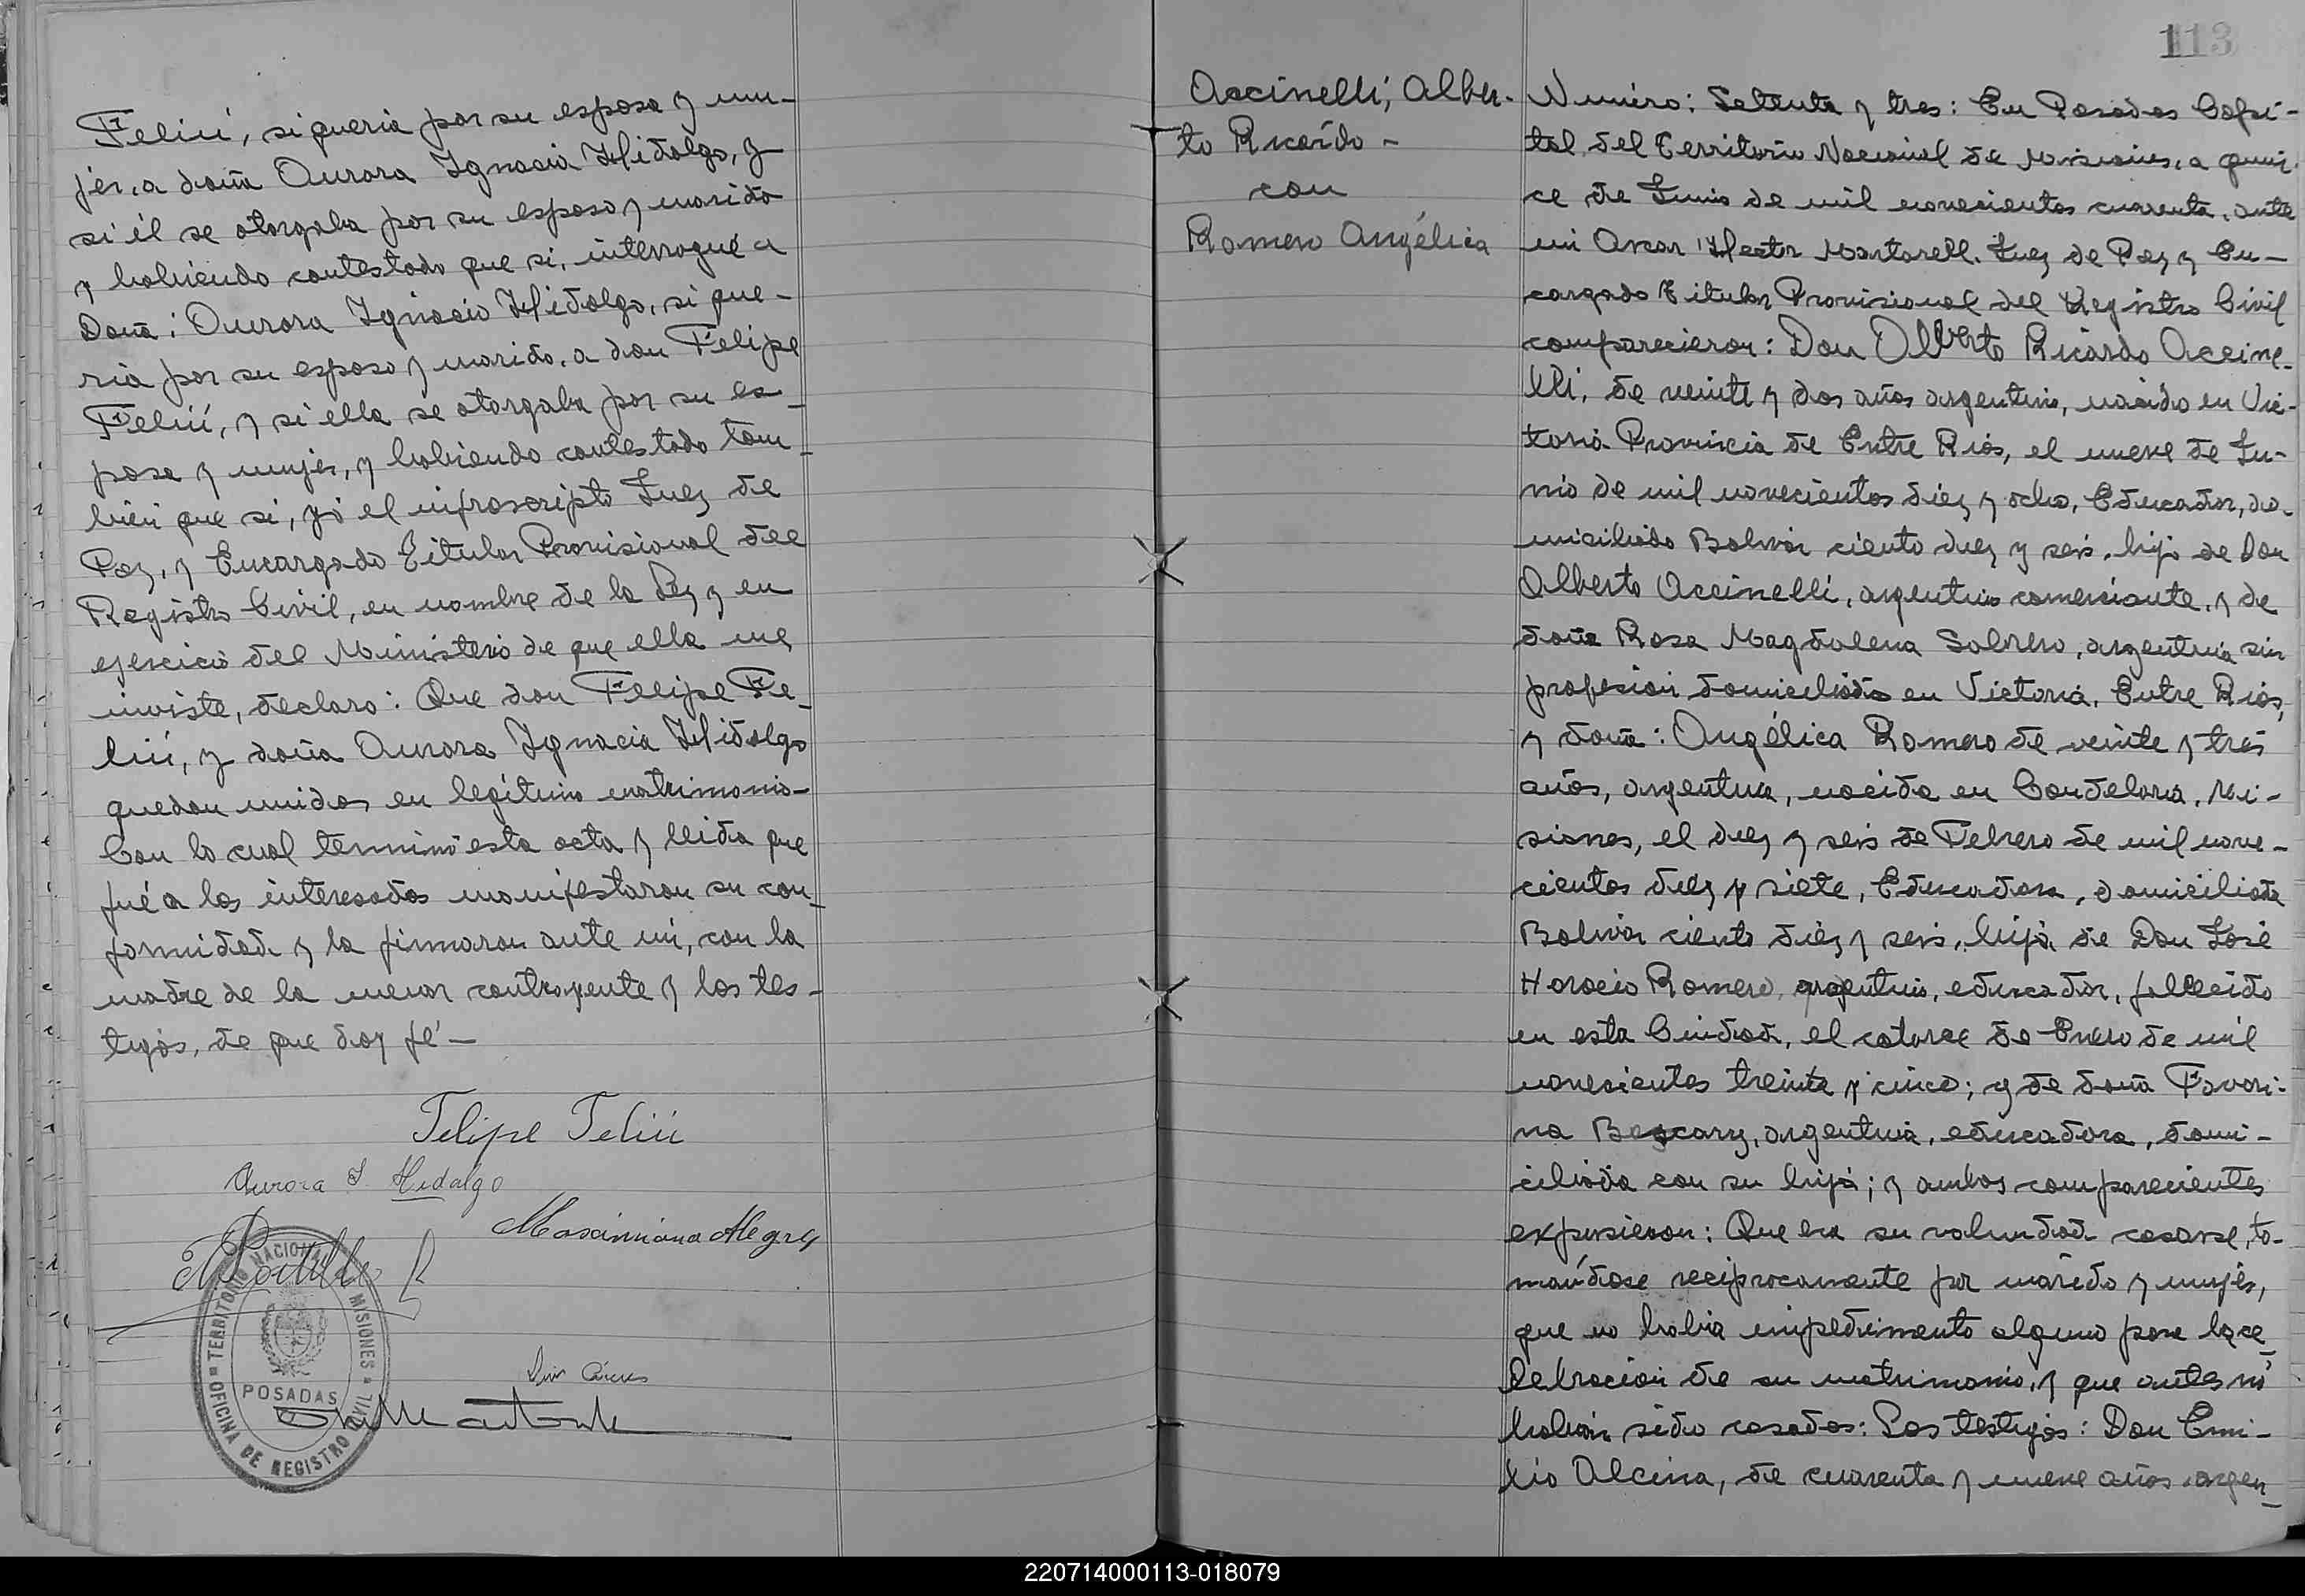 Feliú, si queria por su esposa y mu-
jer, a doña Aurora Ignacia Hidalgo, y
si él se otorgaba por su esposo y marido
y habiendo contestado que si, interrogué a
Doña: Aurora Ignacia Hidalgo, si que-
ria por su esposo y marido, a don Felipe
Feliú, y si ella se otorgaba por su es-
posa y mujer, y habiendo contestado tam-
bién que si, yó el infrascripto Juez de
Paz, y Encargado Titular Provisional del
Registro Civil, en nombre de la Ley y en
ejercicio del Ministerio de que ella me
inviste, declaro: Que don Felipe Fe-
liú, y doña Aurora Ignacia Hidalgo
quedan unidos en legítimo matrimonio-
Con lo cual terminó esta acta y leida que
fué a los interesados manifestaron su con-
formidad y la firmaron ante mi, con la
madre de la menor contrayente y los tes-
tigos, de que doy fé-
Felipe Feliú
Aurora I. Hidalgo
Maximiana Alegre
TERRITORIO NACIONAL MISIONES
POSADAS
OFICINA DE REGISTRO CIVIL
113
Accinelli, Alber-
to Ricardo -
con
Romero Angélica
Número: Setenta y tres: En Posadas Capi-
tal del Territorio Nacional de Misiones, a quin-
ce de Junio de mil novecientos cuarenta, ante
mi Oscar Hector Martorell. Juez de Paz y En-
cargado Titular Provisional del Registro Civil
comparecieron: Don Alberto Ricardo Accine-
lli, de veinte y dos años argentino, nacido en Vic-
toria Provincia de Entre Rios, el nueve de Ju-
nio de mil novecientos diez y ocho, Educador, do-
miciliado Bolivar ciento diez y seis, hijo de Don
Alberto Accinelli, argentino comerciante, y de
doña Rosa Magdalena Sobrero, argentina sin
profesion domiciliados en Victoria, Entre Rios,
y doña: Angélica Romero de veinte y tres
años, argentina, nacida en Candelaria, Mi-
siones, el diez y seis de Febrero de mil nove-
cientos diez y siete, Educadora, domiciliada
Bolivar ciento diez y seis, hija de Don José
Horacio Romero, argentino, educador, fallecido
en esta Ciudad, el catorce de Enero de mil
novecientos treinta y cinco; y de doña Favori-
na Bascary, argentina, educadora, domi-
ciliada con su hija; y ambos comparecientes
expusieron: Que era su voluntad casarse, to-
mandose reciprocamente por marido y mujer,
que no habia impedimento alguno para la ce-
lebracion de su matrimonio, y que antes no
habian sido casados: Los testigos: Don Emi-
lio Alcina, de cuarenta y nueve años argen-
220714000113-018079